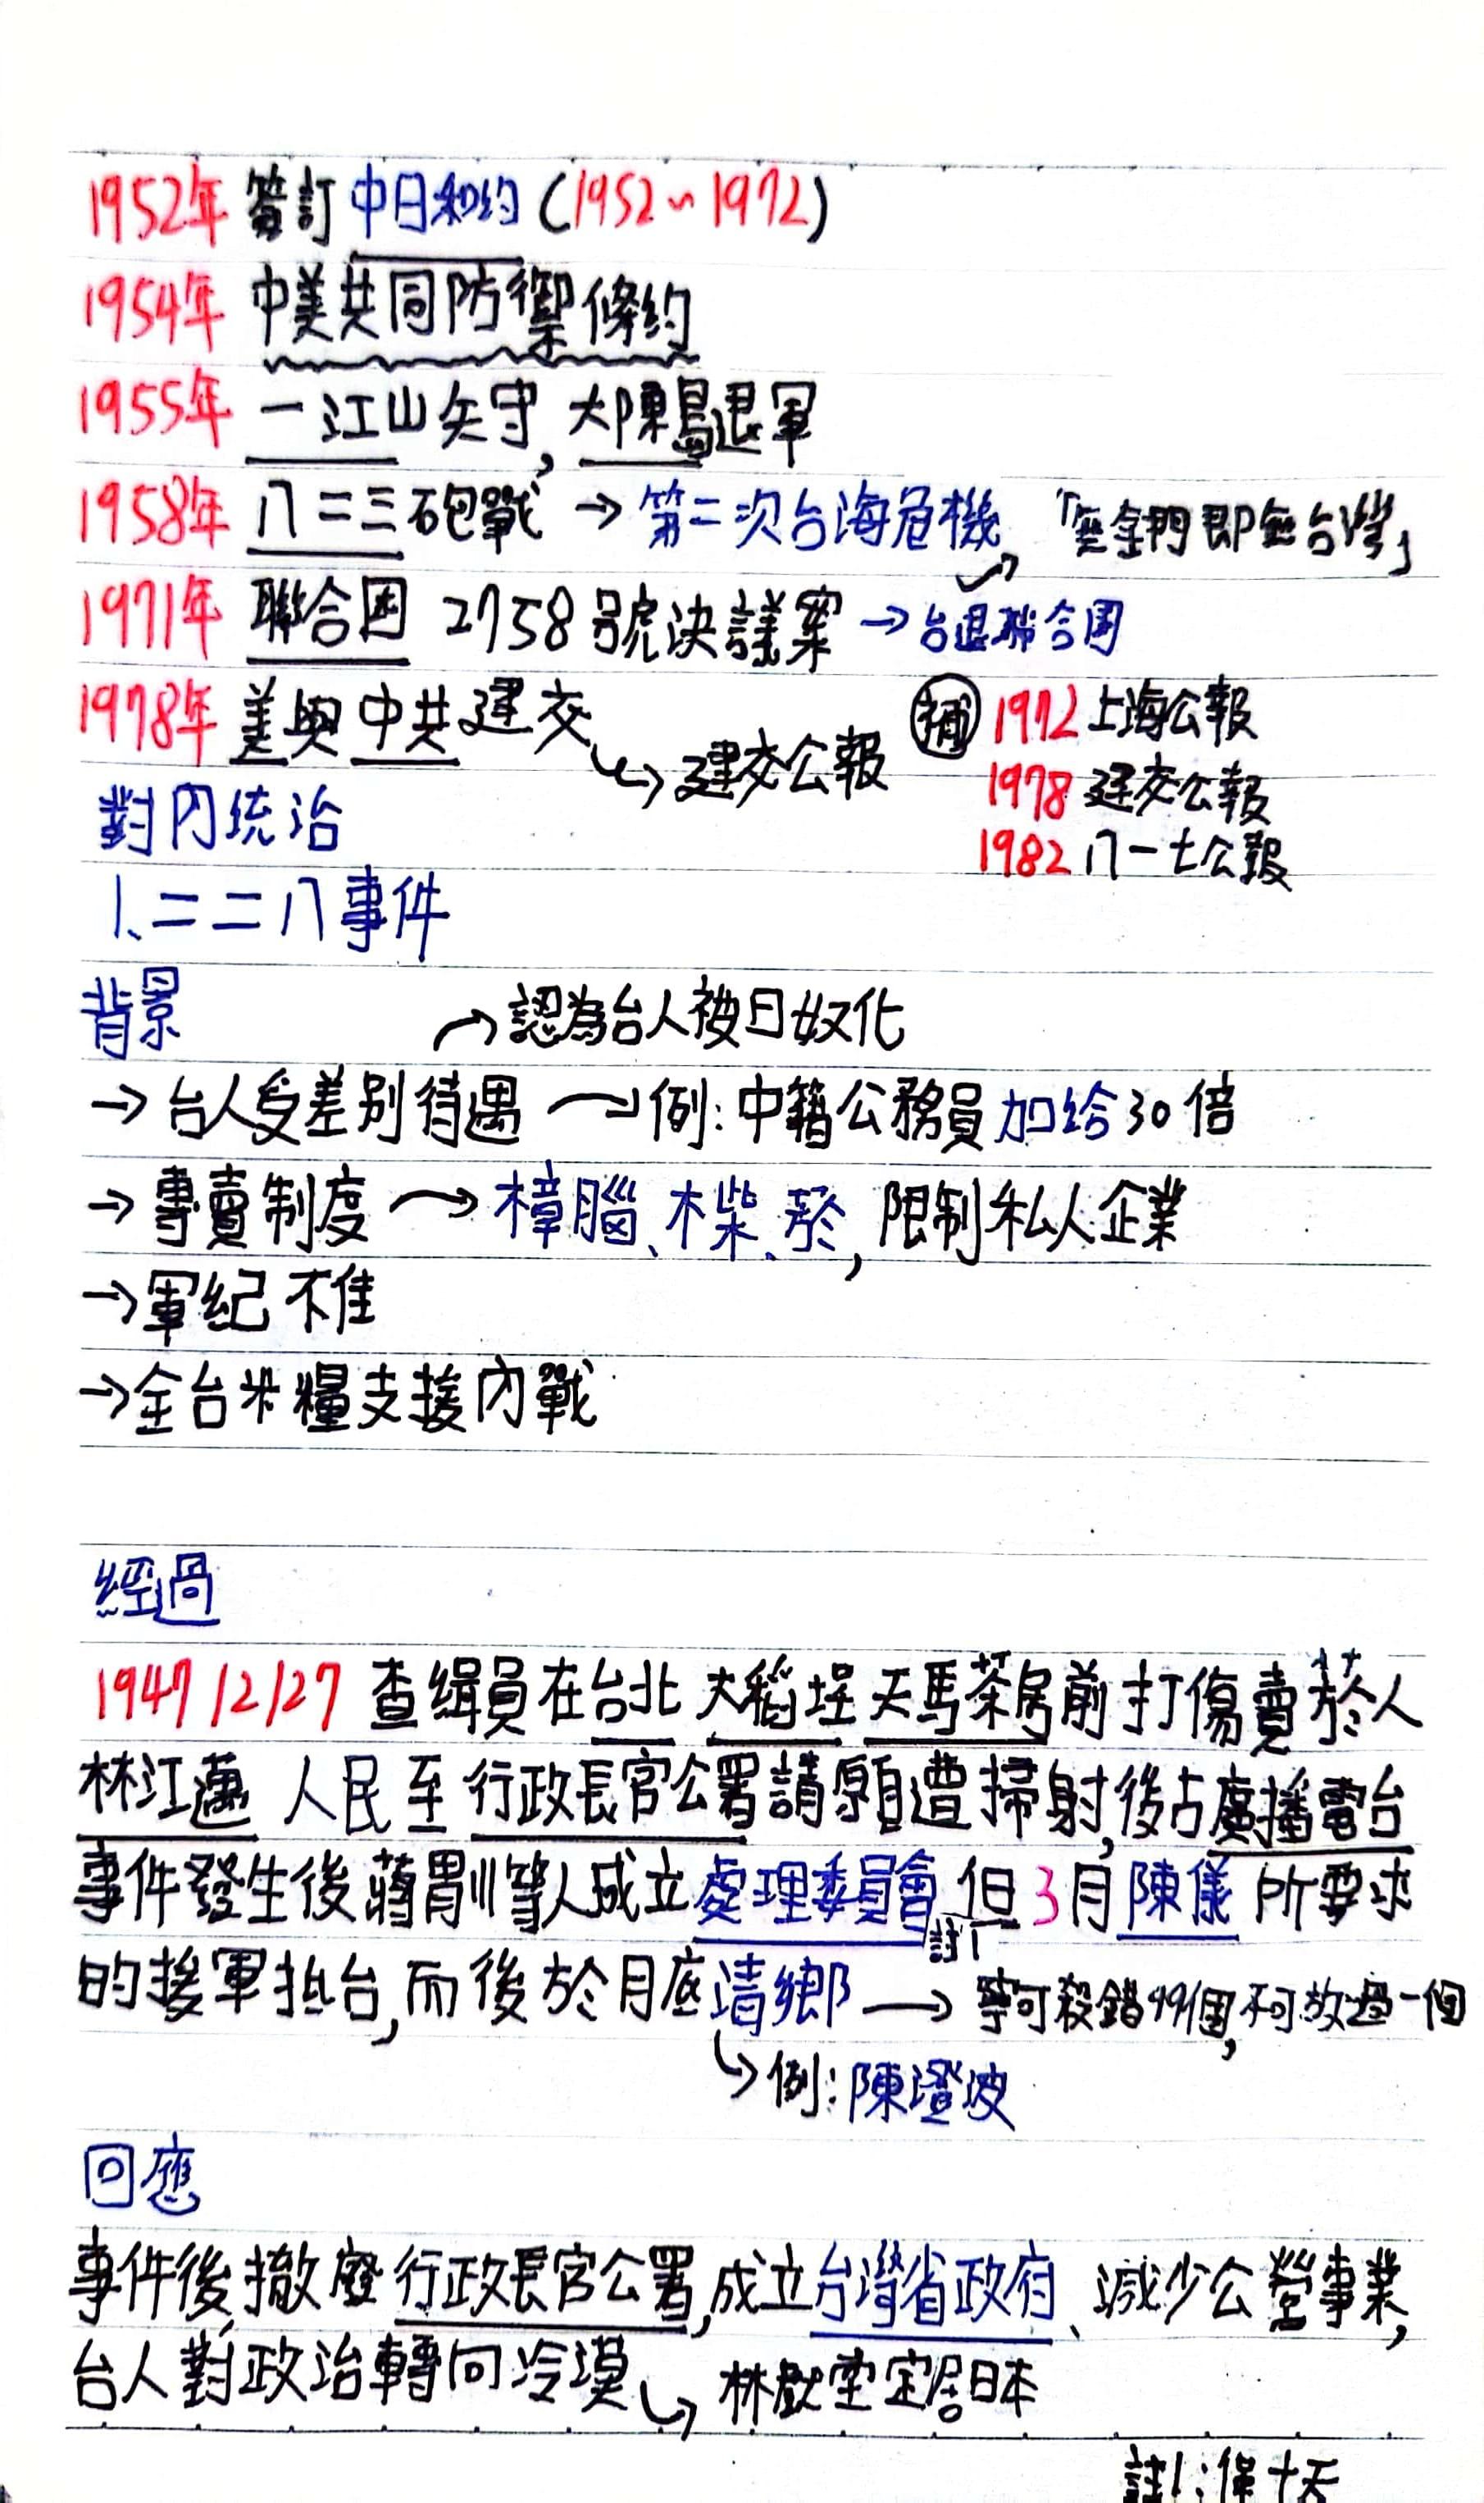 1952年 簽訂 中日和約 (1952~1972)
1954年 中美共同防禦條約
1955年 一江山失守, 大陳島退軍
1958年 八二三砲戰 → 第二次台海危機, 「無金門即無台灣」
1971年 聯合國 2758號決議案 → 台退聯合國
1978年 美與中共建交 → 建交公報
補 1972 上海公報
1978 建交公報
1982 八一七公報
對內統治
1、二二八事件
背景
→ 認為台人被日奴化
→ 台人受差別待遇 → 例: 中籍公務員加給30倍
→ 專賣制度 → 樟腦、木柴、菸, 限制私人企業
→ 軍紀不佳
→ 全台米糧支援內戰
經過
1947/2/27 查緝員在台北大稻埕天馬茶房前打傷賣菸人
林江邁 人民至行政長官公署請願遭掃射,後占廣播電台
事件發生後蔣渭川等人成立處理委員會 但3月陳儀所要求
註1
的援軍抵台,而後於月底清鄉 → 寧可殺錯99個,不可放過一個
→ 例: 陳澄波
回應
事件後,撤廢行政長官公署,成立台灣省政府、減少公營事業,
台人對政治轉向冷漠 → 林獻堂定居日本
註1:僅十天